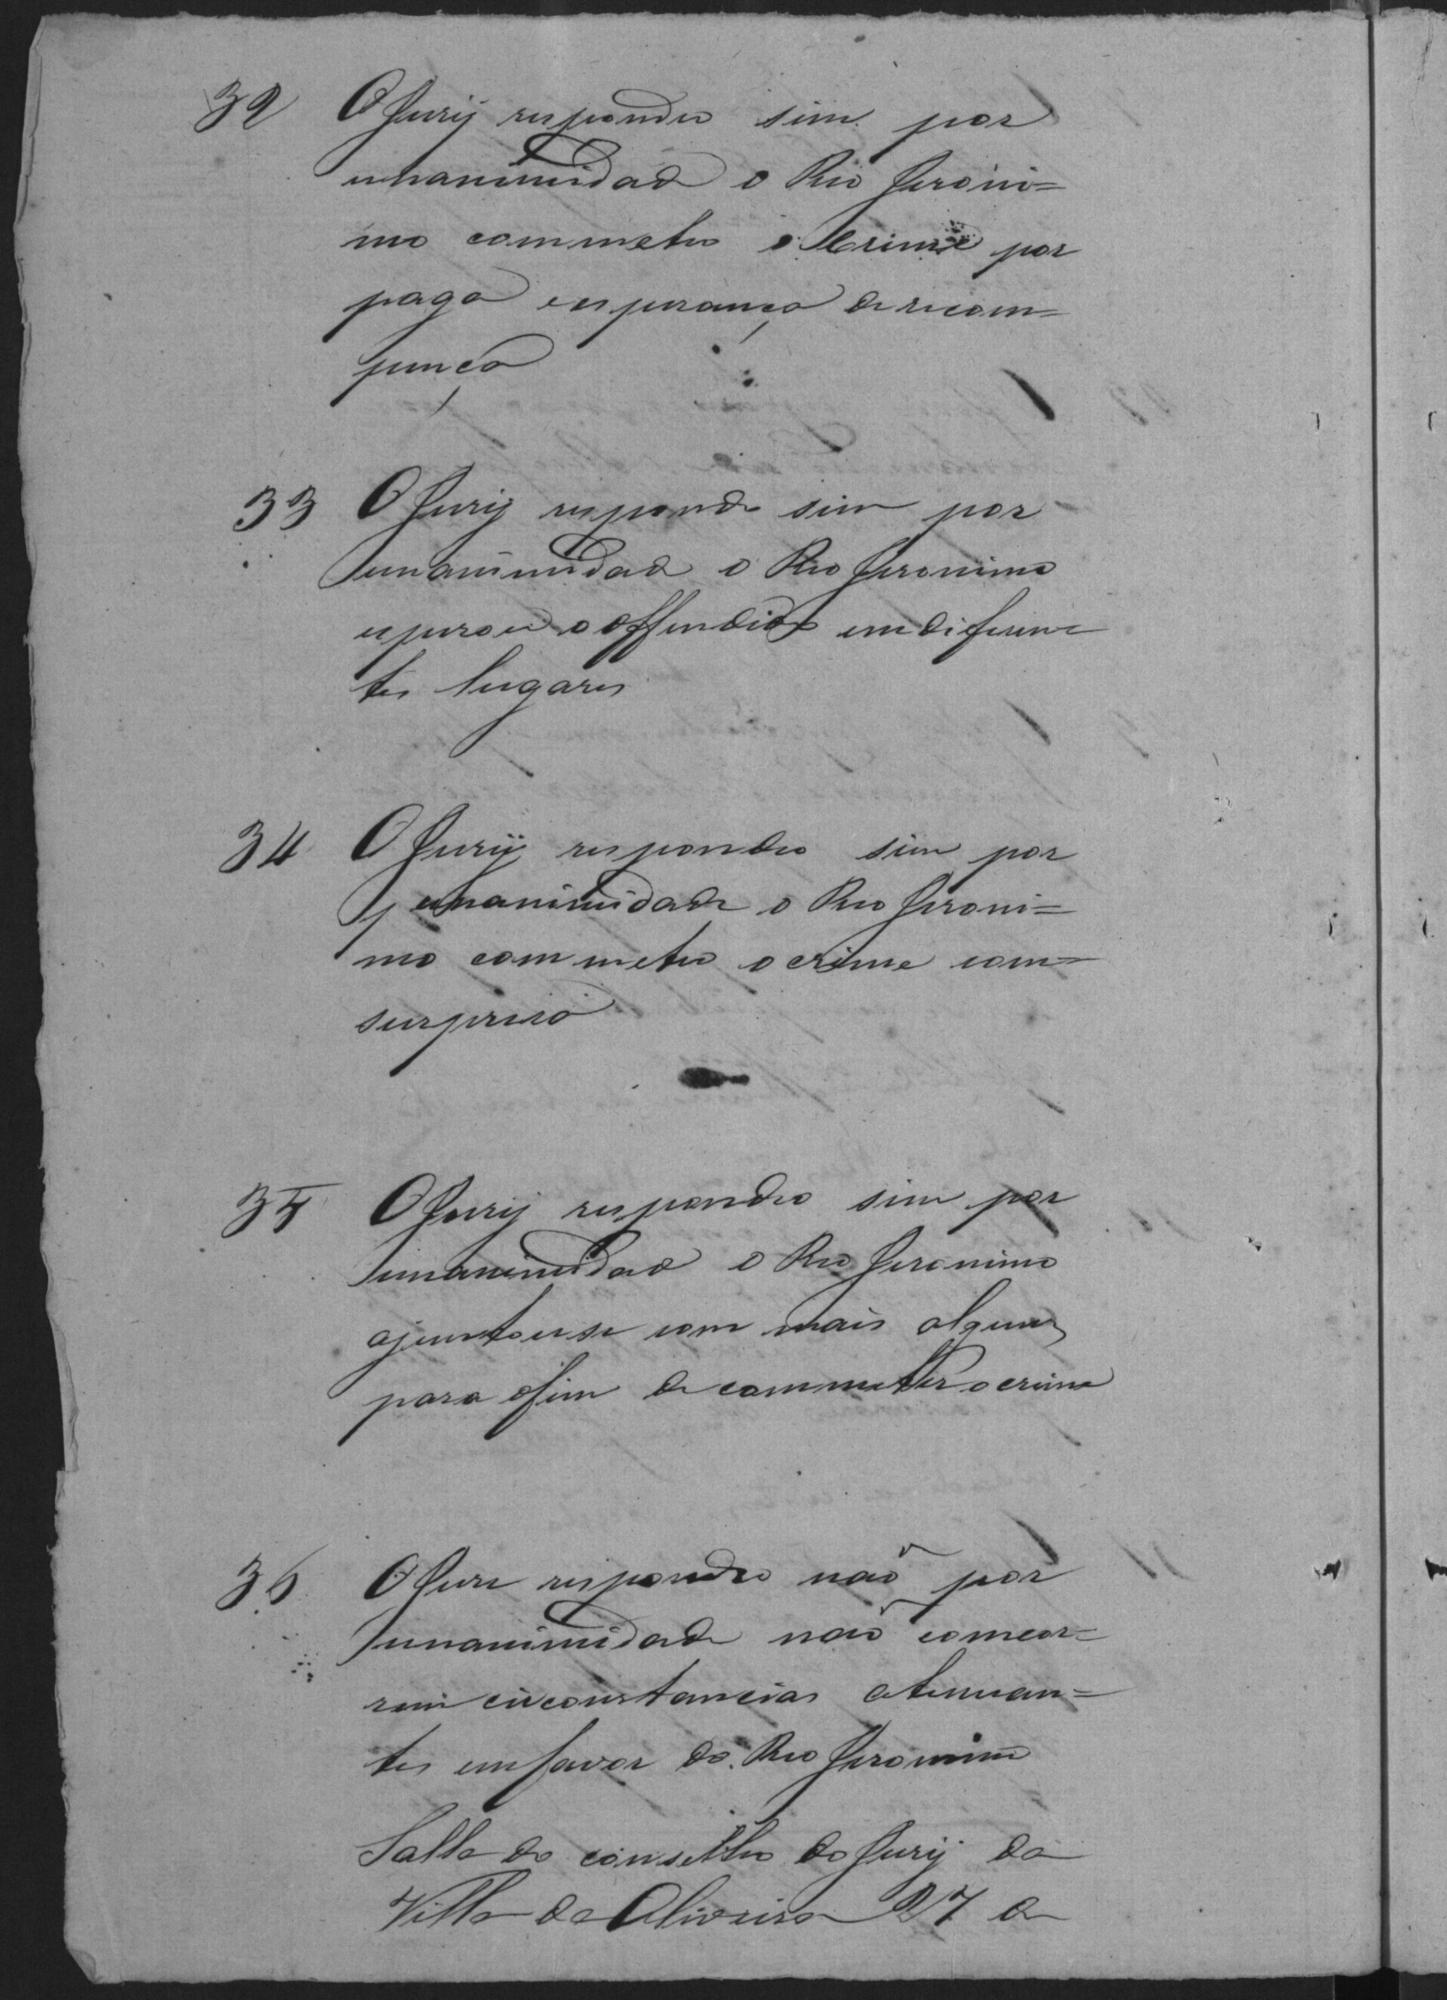 32 O Jury respondeo sim por
unanimidade o Reo Jeroni=
mo commeteo o crime por
paga e esperança de recom=
pença
33 O Jury responde sim por
unanimidade o Reo Jeronimo
esperou o offendido em diferen
tes lugares
34 O Jury respondeo sim por
unanimidade o Reo Jeroni=
mo commeteo o crime com
surpresa
35 O Jury respondeo sim por
unanimidade o Reo Jeronimo
ajuntouse com mais alguem
para o fim de commetter o crime
36 O Jure respondeo não por
unanimidade não comcor=
rem circonstancias atenuan=
tes em favor do Reo Jeronimo
Salla do conselho do Jury da
Villa de Oliveira 27 de